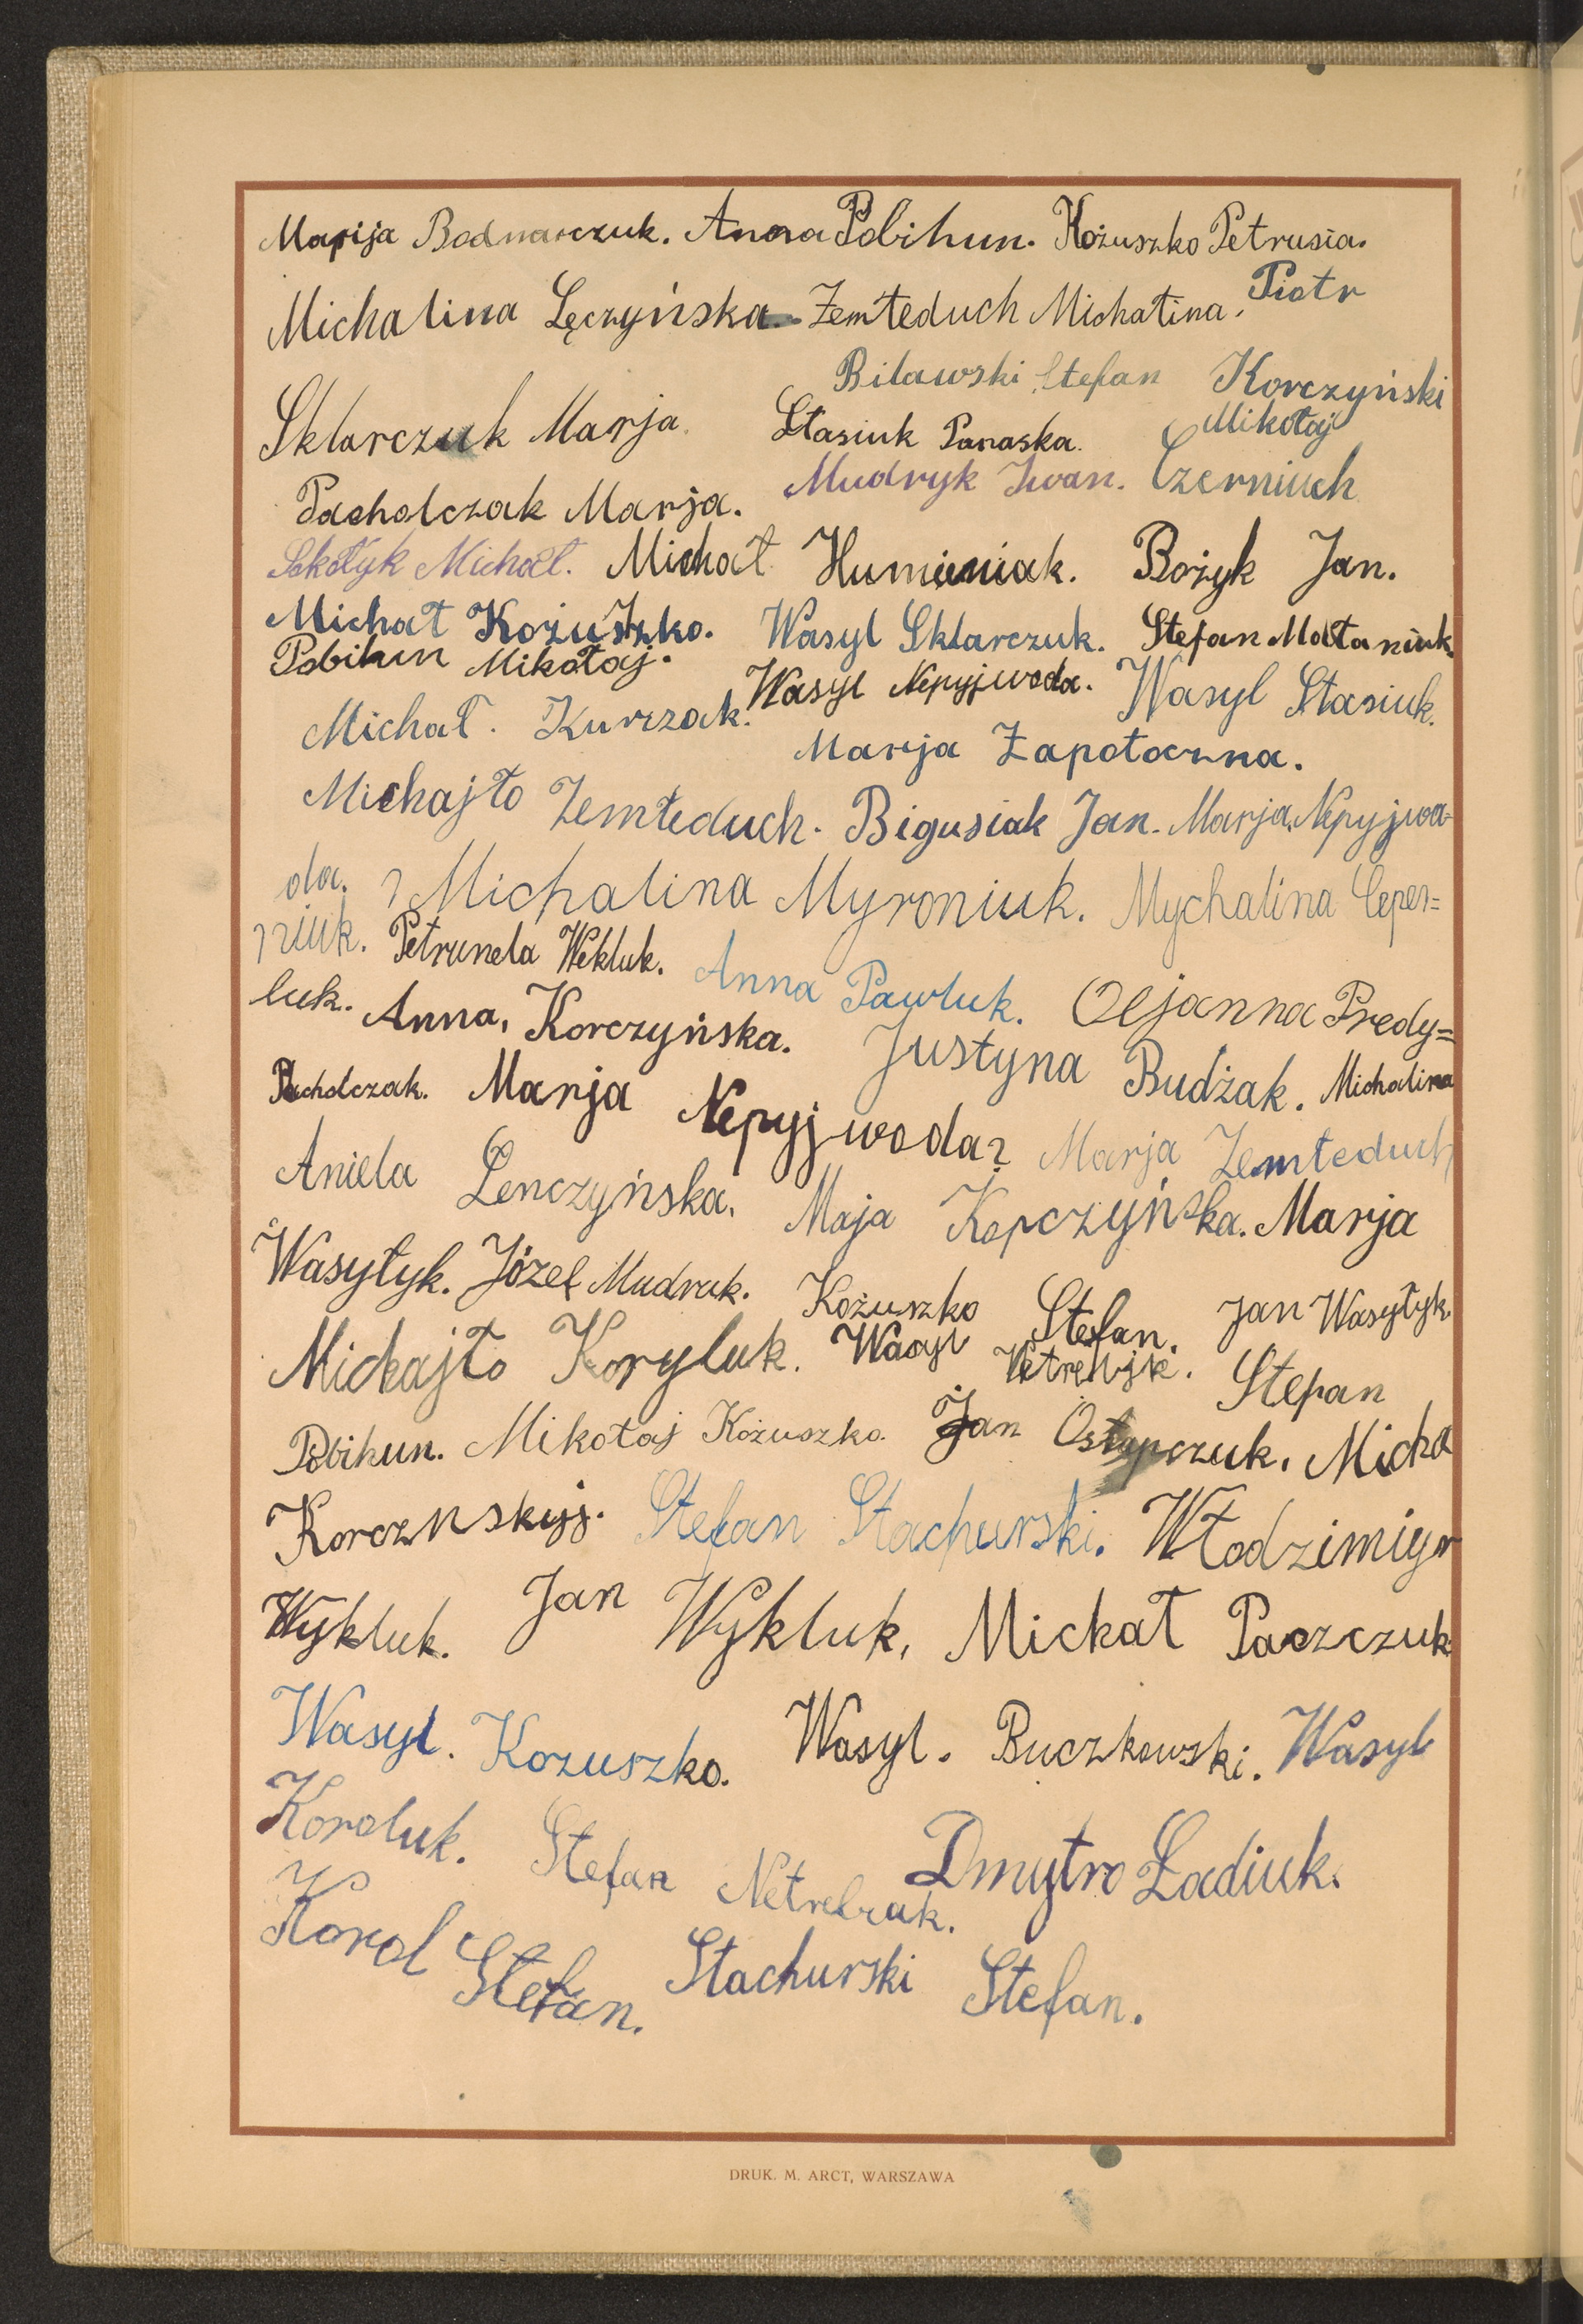 Marija Bodnarczuk. Anna Pobihun. Kożuszko Petrusia.
Michalina Lęczyńska. Zemłeduch Michalina. Piotr
Bilawski Stefan Korczyński
Sklarczuk Marja. Stasiuk Paraska. Mikołaj
Pacholczak Marja. Mudryk Iwan. Czerniuch
Sokołyk Michał. Michał Humieniak. Bożyk Jan.
Michał Kożuszko. Wasyl Sklarczuk. Stefan Małaniuk.
Pobihun Mikołaj. Wasyl Nepyjwoda. Wasyl Stasiuk.
Michał. Kurczak. Marja Zapotoczna.
Michajło Zemłeduch. Bigusiak Jan. Marja Nepyjwo-
da. Michalina Myroniuk. Mychalina Ceper=
niuk. Petrunela Wekluk. Anna Pawluk. Oljanna Predy=
luk. Anna, Korczyńska. Justyna Budżak. Michalina
Pacholczak. Marja Nepyjwoda? Marja Zemłeduch
Aniela Lenczyńska, Maja Kopczyńska. Marja
Wasyłyk. Józef Mudrak. Kożuszko Stefan. Jan Wasyłyk.
Michajło Koryluk. Wasyl Stepan
Pobihun. Mikołaj Kożuszko. Jan Ostapczuk. Micha
Korcznskyj. Stefan Stachurski. Włodzimiyr
Wykluk. Jan Wykluk, Michał Paczczuk
Wasyl. Kozuszko. Wasyl. Buczkowski. Wasyl
Koroluk. Stefan Netrebzak. Dmytro Ładiuk.
Korol Stefan. Stachurski Stefan.
DRUK. M. ARCT, WARSZAWA